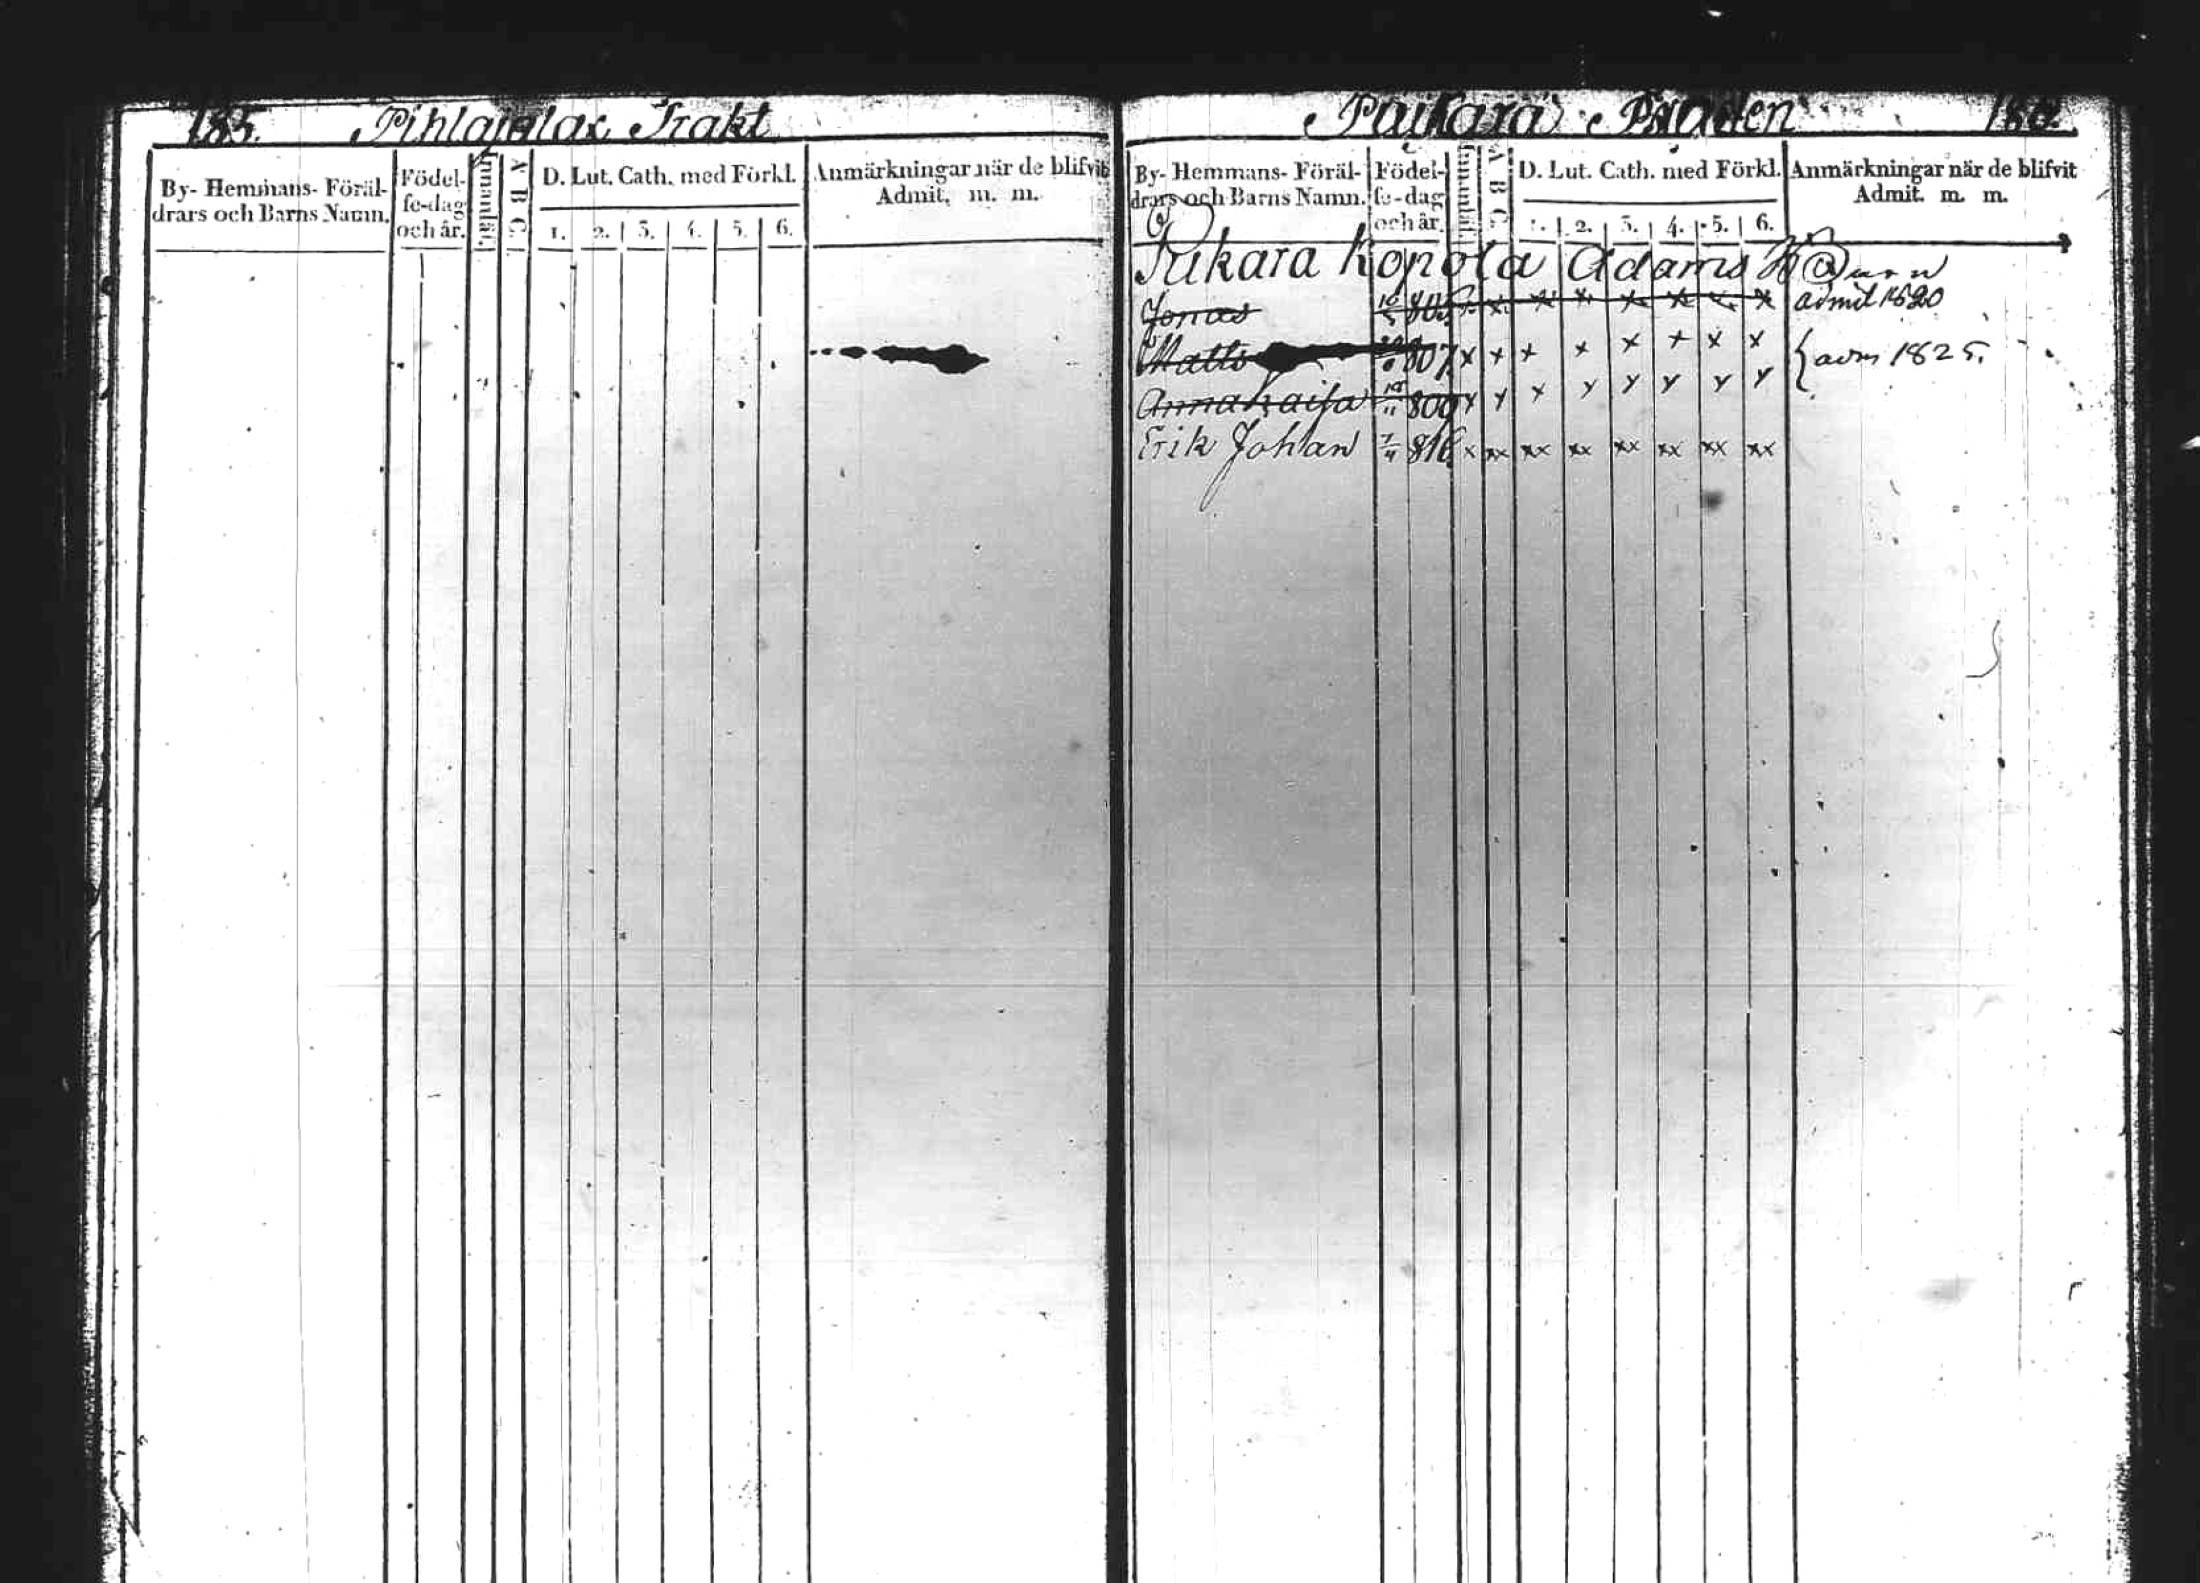 185. Pihlajalax Trakt
By- Hemmans- Föräl-
drars och Barns Namn.
Födel-
se-dag
och år.
Innanläs.
A B C.
D. Lut. Cath. med Förkl.
1. 2. 3. 4. 5. 6.
Anmärkningar när de blifvit
Admit. m. m.
186.
By- Hemmans- Föräl-
drars och Barns Namn.
Födel-
se-dag
och år.
Innanläs.
A B C.
D. Lut. Cath. med Förkl.
1. 2. 3. 4. 5. 6.
Anmärkningar när de blifvit
Admit. m. m.
Kopola Adams
Jonas 805 x x x x x x x admit 1820
Matts 807 x x x x x x x x
Anna Kaisa 10/11 809 x y x y y y y y } adm 1825.
Erik Johan 7/11 816 x xx xx xx xx xx xx xx